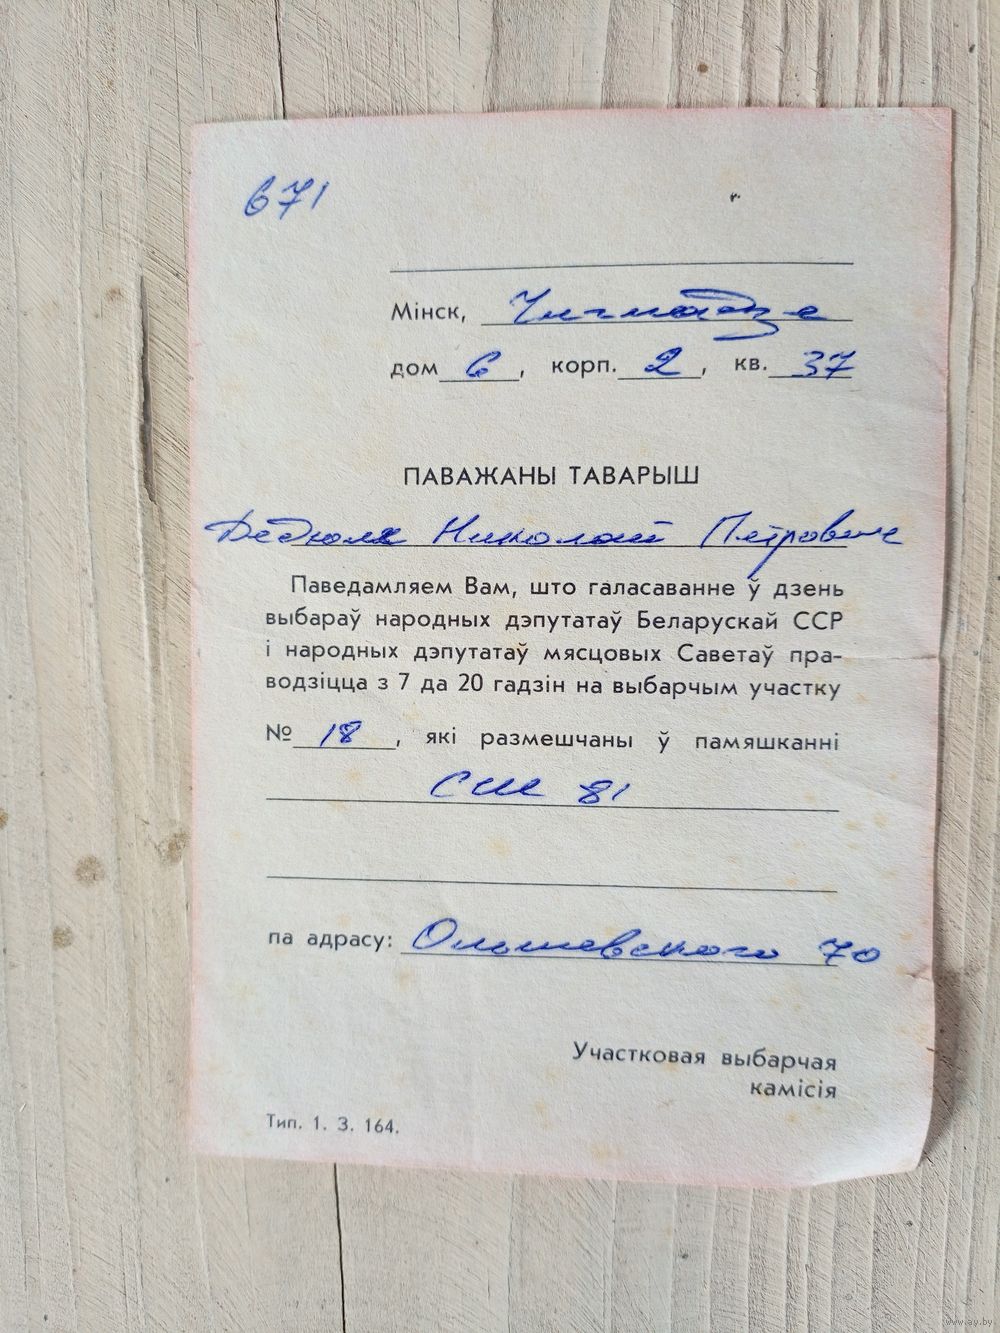 671
Мінск, Чигладзе
дом 6, корп. 2, кв. 37
ПАВАЖАНЫ ТАВАРЫШ
Дедюля Николай Петрович
Паведамляем Вам, што галасаванне ў дзень
выбараў народных дэпутатаў Беларускай ССР
і народных дэпутатаў мясцовых Саветаў пра-
водзіцца з 7 да 20 гадзін на выбарчым участку
№ 18, які размешчаны ў памяшканні
СШ 81
па адрасу: Ольшевского 70
Участковая выбарчая
камісія
Тип. 1. З. 164.
www.ay.by